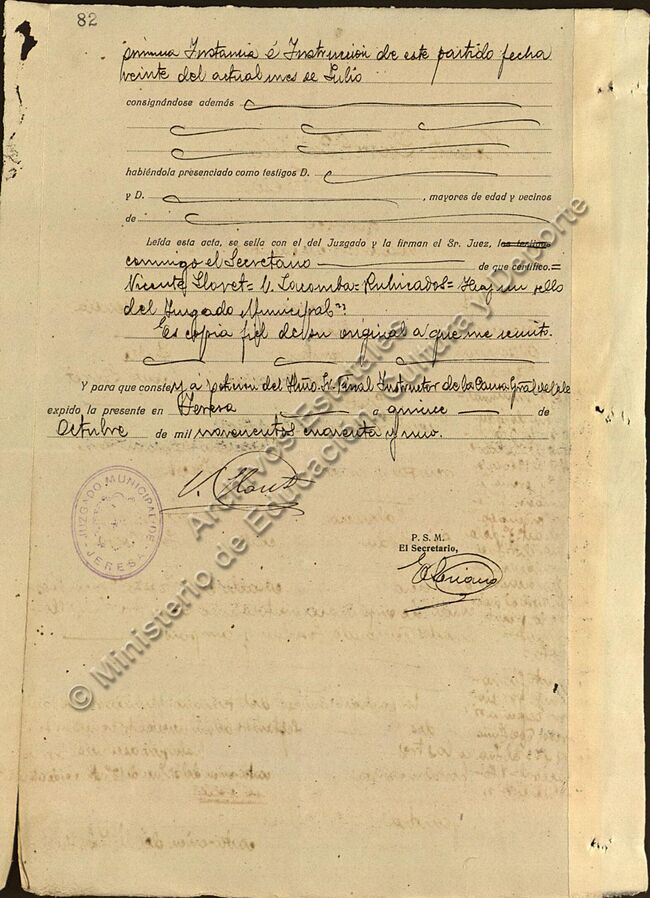 82
primera Instancia é Instrucción de este partido fecha
veinte del actual mes de Julio
consignándose además
habiéndola presenciado como testigos D.
y D. , mayores de edad y vecinos
de
Leída esta acta, se sella con el del Juzgado y la firman el Sr. Juez, los testigos
conmigo el Secretario de que certifico.=
Vicente Lloret= = Rubricados= Hay un sello
del Juzgado Municipal
Es copia fiel de su original a que me remito.
Y para que conste y a petición del Iltmo. Sr. Instructor de la Causa Gral de
expido la presente en Jeresa a quince de
Octubre de mil novecientos cuarenta y uno.
V. Lloret
JUZGADO MUNICIPAL DE
JERESA
P. S. M.
El Secretario,
© Ministerio de Educación Cultura y Deporte
Archivos Estatales